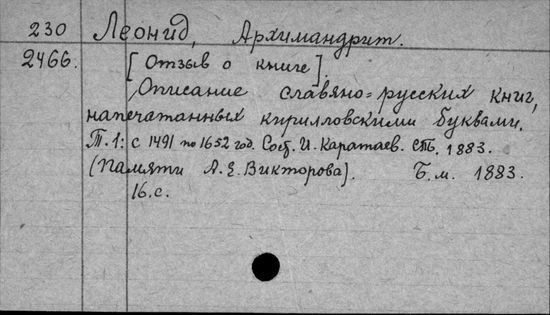 230 Леонид, Архимандрит.
2466. [Отзыв о книге].
Описание славяно=русских книг,
напечатанных кирилловскими буквами.
Т.1: с 1491 по 1652 год. Сост. И. Каратаев. СПб. 1883.
(Памяти А.Е. Викторова). Б.м. 1883.
16.с.